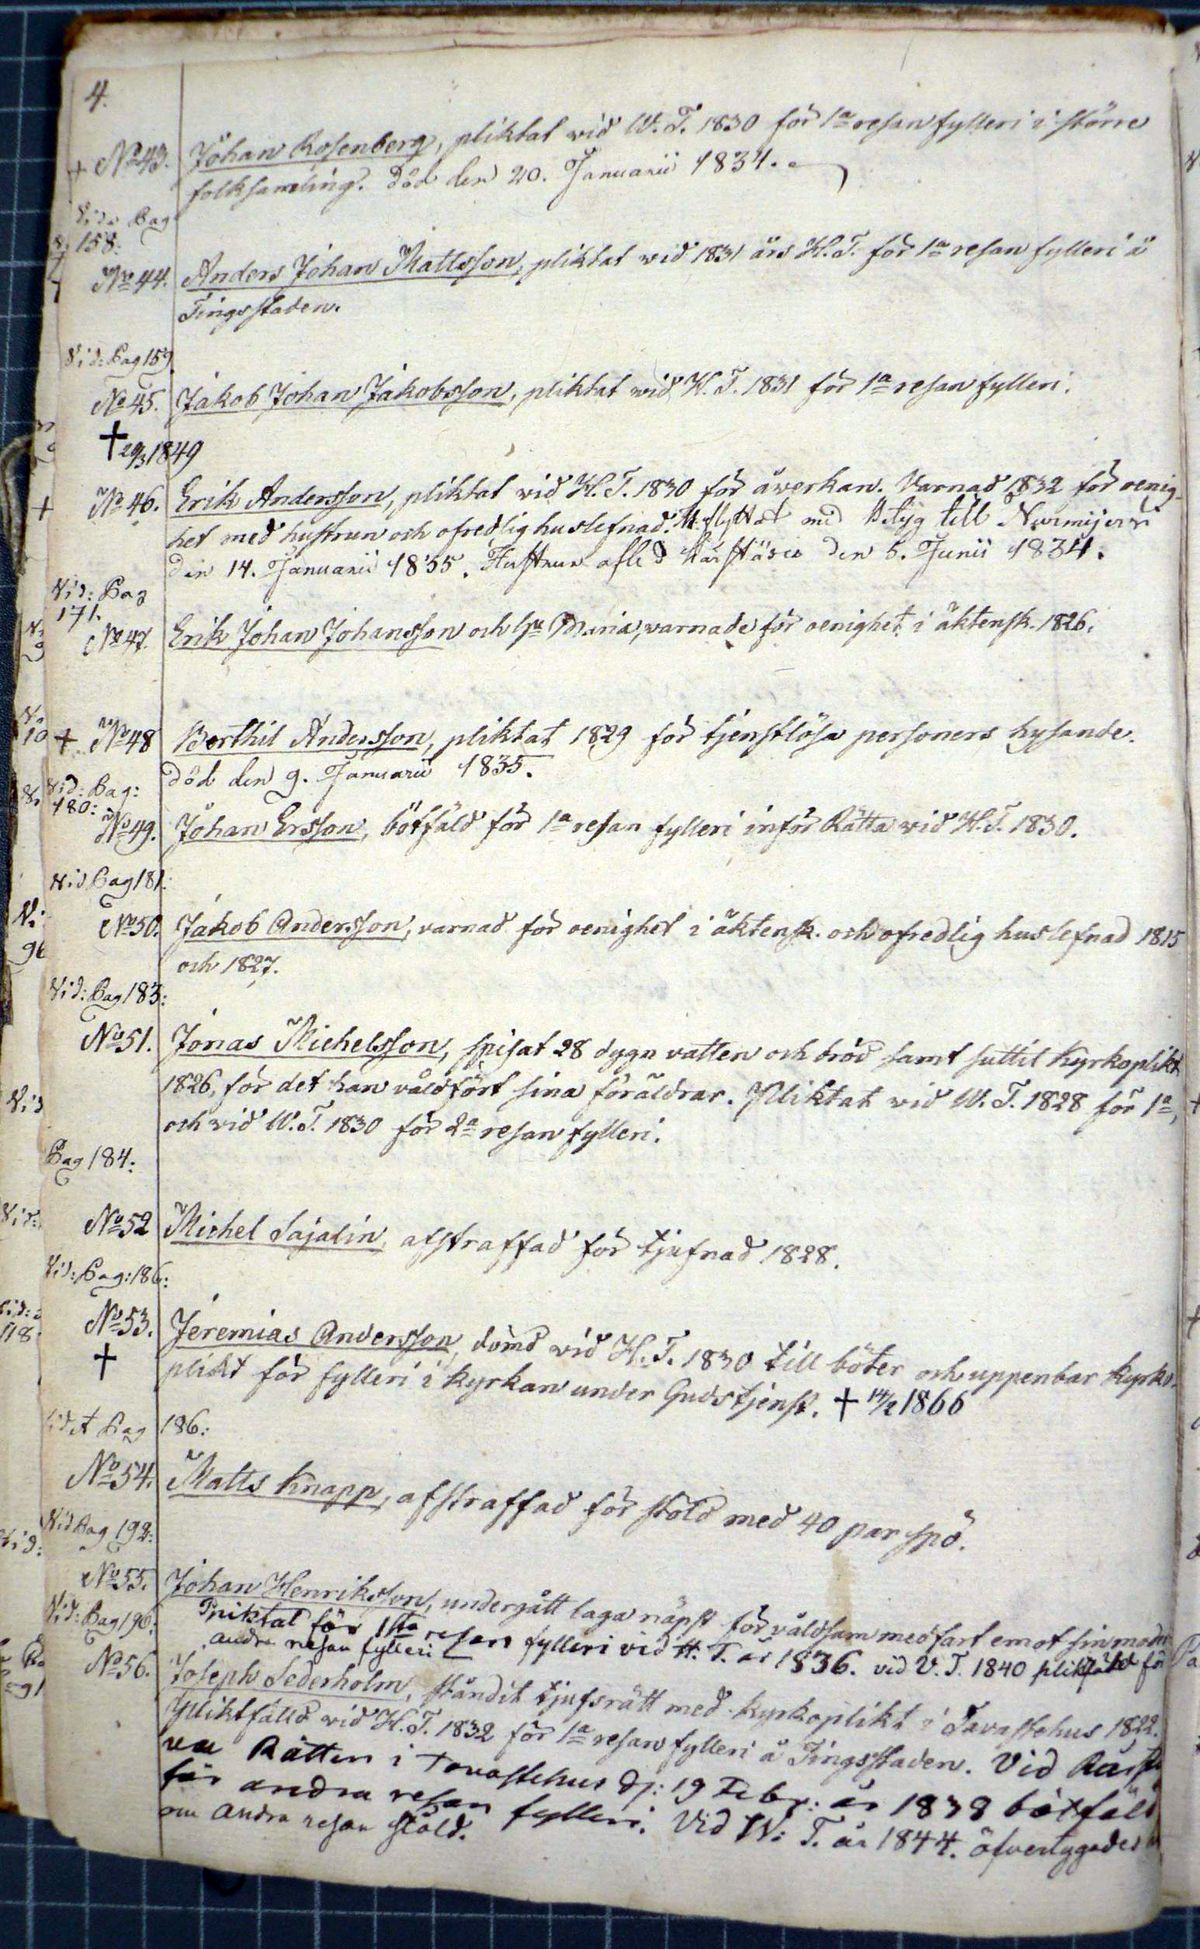 4.
+ No 43. Johan Rosenberg, pliktat wid W. T. 1830 för 1a resan fylleri i större
folksamling. död den 20. Januarii 1834.
Vide Pag
158.
No 44. Anders Johan Mattsson, pliktat wid 1831 års H. T. för 1a resan fylleri å
Tingsstaden.
Vid: Pag 159
No 45. Jakob Johan Jakobsson, pliktat wid H. T. 1831 för 1a resan fylleri.
† 29/3 1849
+ No 46. Erik Andersson, pliktat wid H. T. 1830 för åwerkan. Varnad 1832 för oenig-
het med hustrun och ofredlig huslefnad. flyttat med Betyg till Nurmijerwi
den 14. Januarii 1835. Hustrun afled den 5. Junii 1834.
Vid: Pag
171.
No 47. Erik Johan Johansson och Maria, warnade för oenighet i äktensk. 1826.
+ No 48 Berthil Andersson, pliktat 1829 för tjenstlösa personers hysande.
död den 9. Januarii 1835.
Vid: Pag:
180:
No 49. Johan Ersson, botfäld för 1a resan fylleri inför Rätta wid H. T. 1830.
Vid Pag 181:
No 50. Jakob Andersson, varnad för oenighet i äktensk. och ofredlig huslefnad 1815
och 1827.
Vid: Pag 183:
No 51. Jonas Michelsson, spisat 28 dygn vatten och bröd samt suttit Kyrkoplikt
1826, för det han våldfört sina föräldrar. Pliktat wid W. T. 1828 för 1a,
och wid W. T. 1830 för 2a resan fylleri.
Pag 184:
No 52 Michel Sajalin, afstraffad för tjufnad 1828.
Vid: Pag: 186:
No 53. Jeremias Andersson, dömd wid H. T. 1830 till böter och uppenbar Kyrko-
† plikt för fylleri i kyrkan under Gudstjenst. † 14/2 1866
Vid Pag 186:
No 54. Matts Knapp, afstraffad för stöld med 40 par spö.
Vid Pag 192:
No 55. Johan Henriksson, undergått laga näpst för våldsam medfart emot sin moder
Vid: Pag 196: Pliktat för 1sta resan fylleri vid H. T. år 1836. vid V. T. 1840 pliktfäld för
andra resan fylleri
No 56. Joseph Sederholm, ståndit tjufsrätt med kyrkoplikt i Tavastehus 1822.
Pliktfälld wid H. T. 1832 för 1a resan fylleri å Tingsstaden. Vid
Rätten i Tavastehus d: 19 Febr: år 1838 botfäld
för andra resan fylleri. Vid W: T. år 1844. öfvertygades
om andra resan stöld.